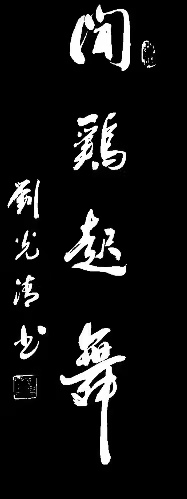 聞鷄起舞
劉光清书